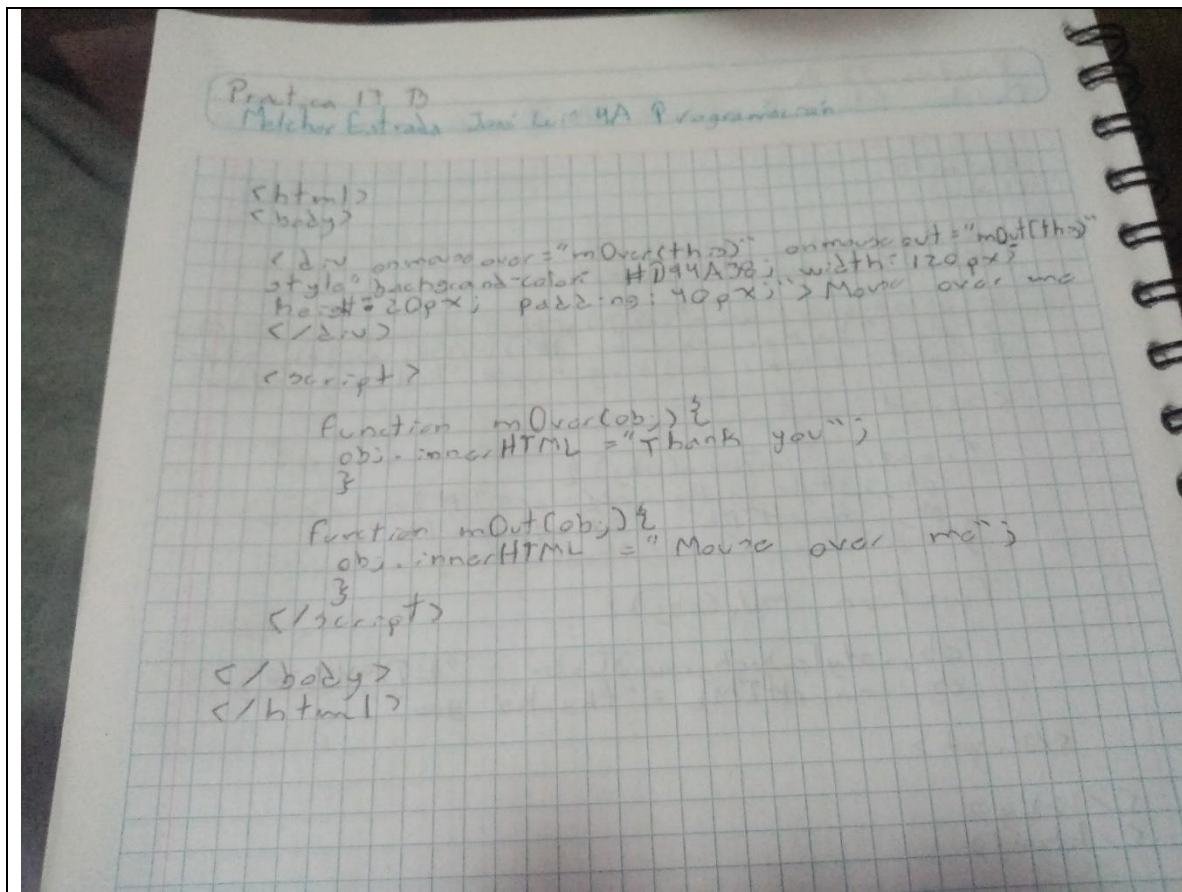 Practica 17 B
Melchor Estrada José Luis 4A Programación
<html>
<body>
<div onmouseover="mOver(this)" onmouseout="mOut(this)"
style"background-color: #D94A38; width: 120px;
height=20px; padding: 40px;">Mouse over me
</div>
<script>
function mOver(obj){
obj.innerHTML ="Thank you";
}
function mOut(obj){
obj.innerHTML ="Mouse over me";
}
</script>
</body>
</html>